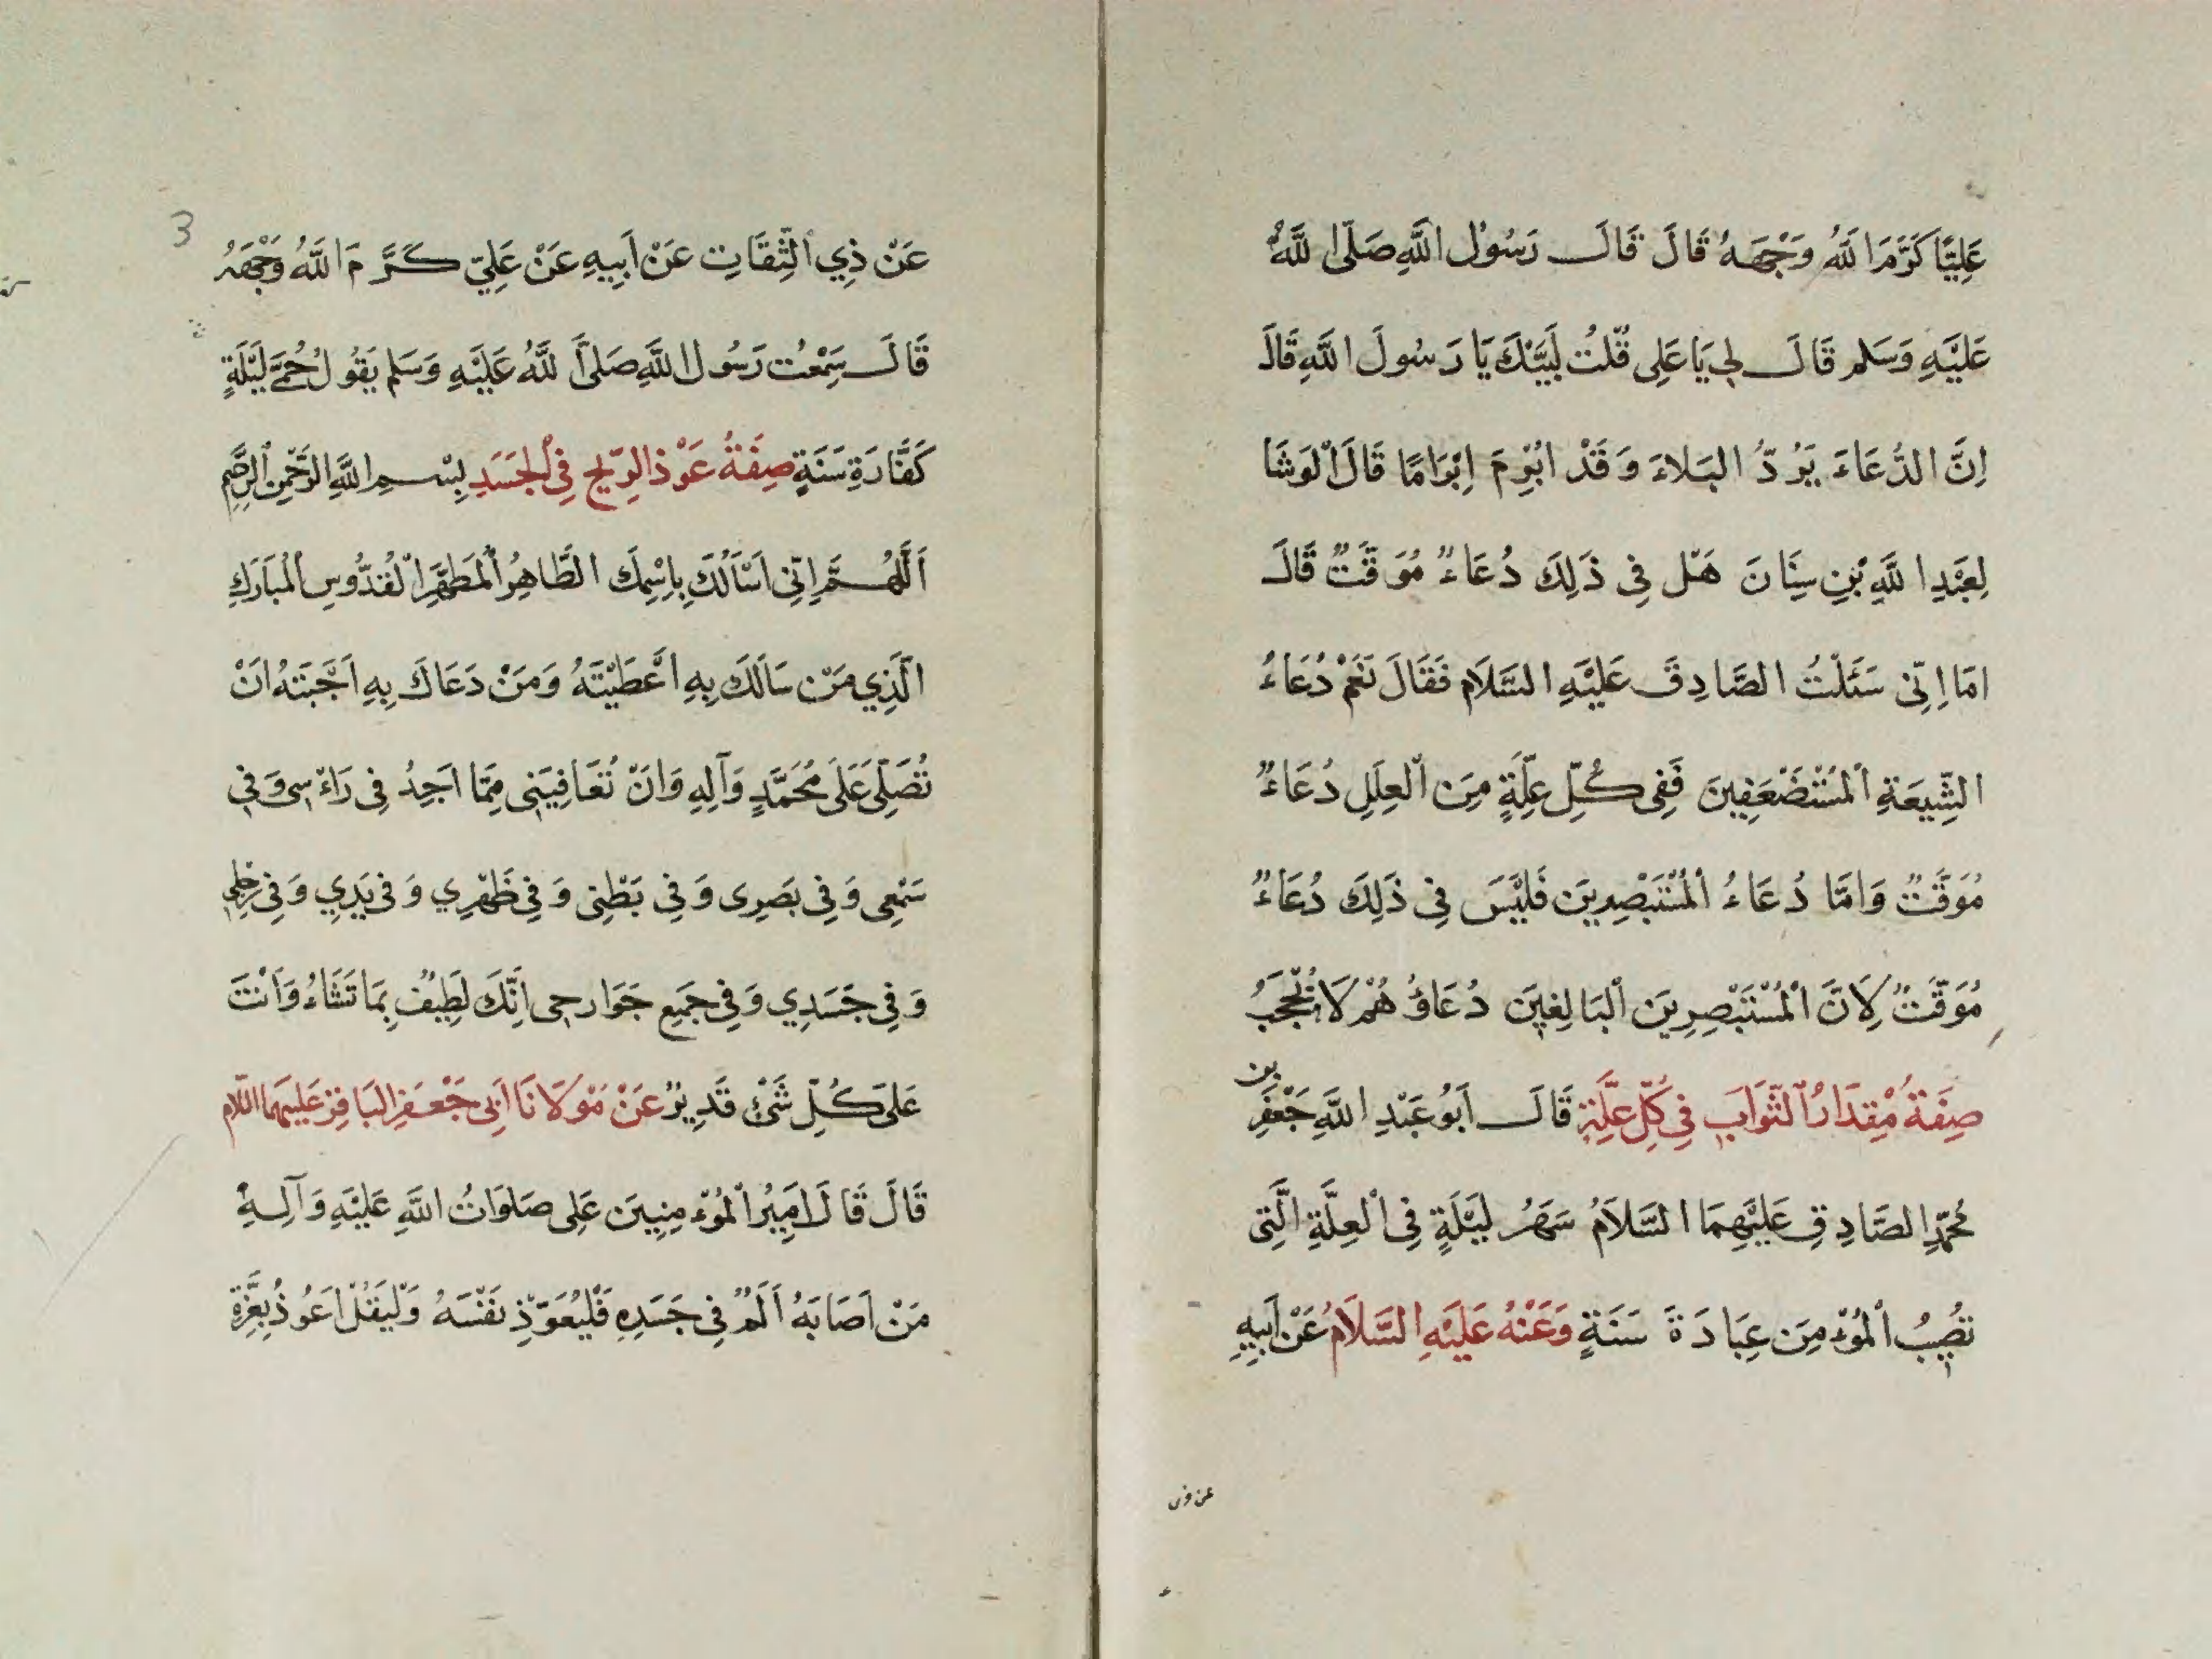 عَلِيًّا كَرَّمَ اللَّهُ وَجْهَهُ قَالَ قَالَ رَسُولُ اللَّهِ صَلَّى اللَّهُ
عَلَيْهِ وَسَلم قَالَ لِي يَا عَلِى قُلْتُ لَبَّيْكَ يَا رَسُولَ اللَّهِ قَالَ
اِنَّ الدُّعَاءَ يَرُدُّ البَلاءَ وَقَدْ ابْرِمَ اِبْرَامًا قَالَ الْوَشَا
لِعَبْدِ اللَّهِ بْنِ سِنَانَ هَلْ فِى ذَلِكَ دُعَاءٌ مُوَقَّتٌ قَالَ
امَا اِنِّى سَئَلْتُ الصَّادِقَ عَلَيْهِ السَّلَام فَقَالَ نَعَمْ دُعَاءُ
الشِّيعَةِ الْمُسْتَضْعَفِينَ فَفِى كُلِّ عِلَّةٍ مِنَ الْعِلَلِ دُعَاءٌ
مُوَقَّتٌ وَامَّا دُعَاءُ الْمُسْتَبْصِرِينَ فَلَيْسَ فِى ذَلِكَ دُعَاءٌ
مُوَقَّتٌ لِاَنَّ الْمُسْتَبْصِرِينَ الْبَالِغِينَ دُعَاؤُهُمْ لَا يُحْجَبُ
صِفَةُ مِقْدَارُ الثَّوَابِ فِى كُلِّ عِلَّةٍ قَالَ اَبُو عَبْدِ اللَّهِ جَعْفَرِ بن
مُحَمَّدٍ الصَّادِقِ عَلَيْهِمَا السَّلاَمُ سَهَرُ لَيْلَةٍ فِى الْعِلَّةِ الَّتِى
تصِيبُ الْمُؤْمِنَ عِبَادَةَ سَنَةٍ وَعَنْهُ عَلَيْهِ السَّلاَمُ عَنْ اَبِيهِ
عن ذى
3
عَنْ ذِي الثِّقَاتِ عَنْ اَبِيهِ عَنْ عَلِيّ كَرَّمَ اللَّهُ وَجْهَهُ
قَالَ سَمِعْت رَسُول اللَّهِ صَلَّى اللَّهُ عَلَيْهِ وَسَلم يَقُولُ حُمَّى لَيْلَةٍ
كَفَّارَةِ سَنَةٍ صِفَةُ عَوْذ الرِّيحِ فِى الْجَسَدِ بِسْمِ اللَّهِ الرَّحْمنِ الرَّحِيمِ
اَللَّهُمَّ اِنِّى اَسْاَلُكَ بِاِسْمِكَ الطَّاهِرِ الْمُطَهَّرِ الْقُدُّوسِ الْمُبَارَكِ
الَّذِي مَنْ سَالَكَ بِهِ اَعْطَيْتَهُ وَمَنْ دَعَاكَ بِهِ اَجَبْتَهُ اَنْ
تُصَلِّى عَلَى مُحَمَّدٍ وَآلِهِ وَانْ تُعَافِيَنِى مِمَّا اَجِدُ فِى رَاءْسِى وَفِى
سَمْعِى وَفِى بَصَرِى وَفِى بَطْنِى وَفِى ظَهْرِي وَفِى يَدِي وَفِى رِجْلِى
وَفِى جَسَدِي وَفِى جَمِيع جَوَارحِى اِنَّكَ لَطِيفٌ بِمَا تَشَاءُ وَاَنْتَ
عَلَى كُلِّ شَىْءٍ قَدِيرٌ عَنْ مَوْلَانَا اَبِى جَعْفَرٍ البَاقِرِ عَلَيْهِمَا السَّلام
قَالَ قَالَ اَمِيرُ الْمُؤْمِنِينَ عَلِى صَلَوَاتُ اللَّهِ عَلَيْهِ وَآلِهِ
مَنْ اَصَابَهُ اَلَمٌ فِى جَسَدِهِ فَلْيُعَوِّذْ نَفْسَهُ وَلْيَقُلْ اَعُوذُ بِعِزَّةِ